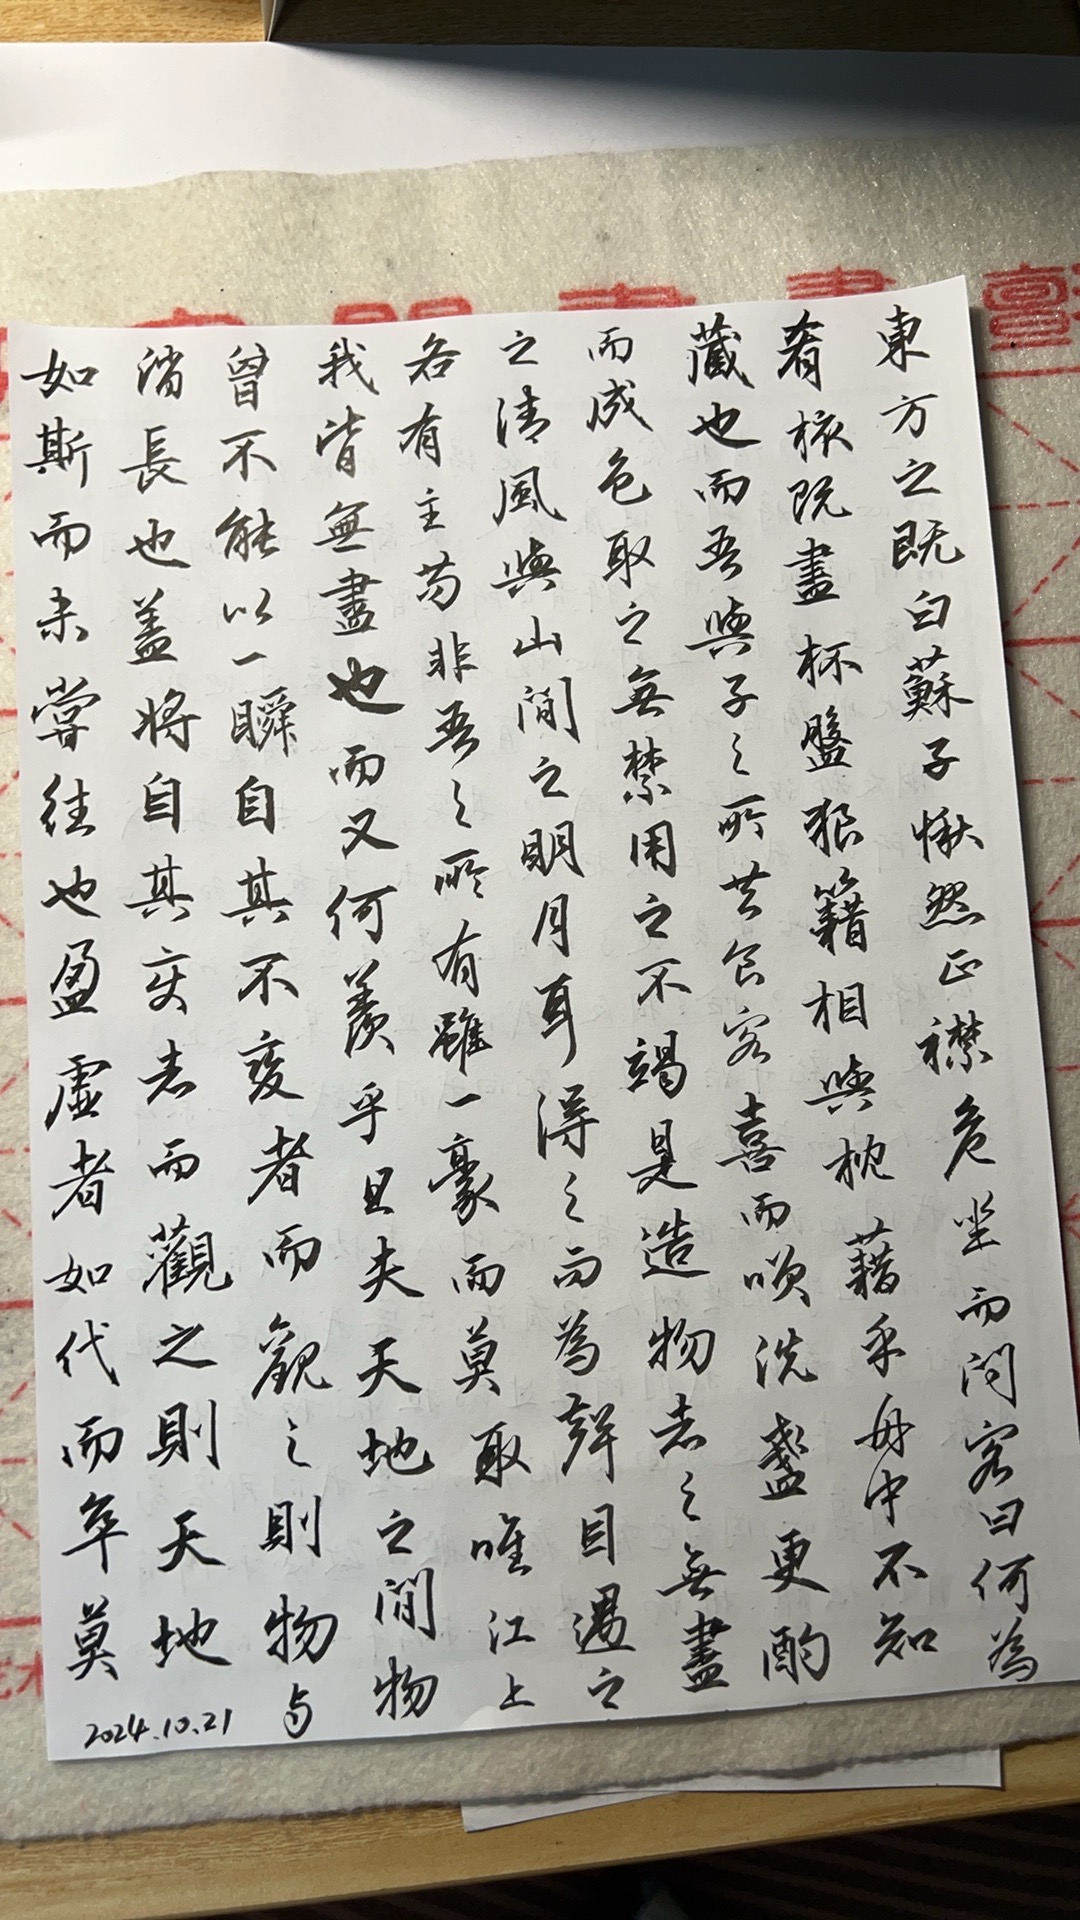 如斯而未嘗往也盈虛者如代而卒莫
消長也盖將自其变者而觀之則天地
曾不能以一瞬自其不變者而觀之則物与
我皆無盡也而又何羨乎且夫天地之間物
各有主苟非吾之所有雖一豪而莫取唯江上
之清風與山間之明月耳得之而為聲目遇之
而成色取之無禁用之不竭是造物者之無盡
藏也而吾與子之所共食客喜而咲洗盞更酌
肴核既盡杯盤狼籍相與枕藉乎舟中不知
東方之既白蘇子愀然正襟危坐而問客曰何為
2024.10.21